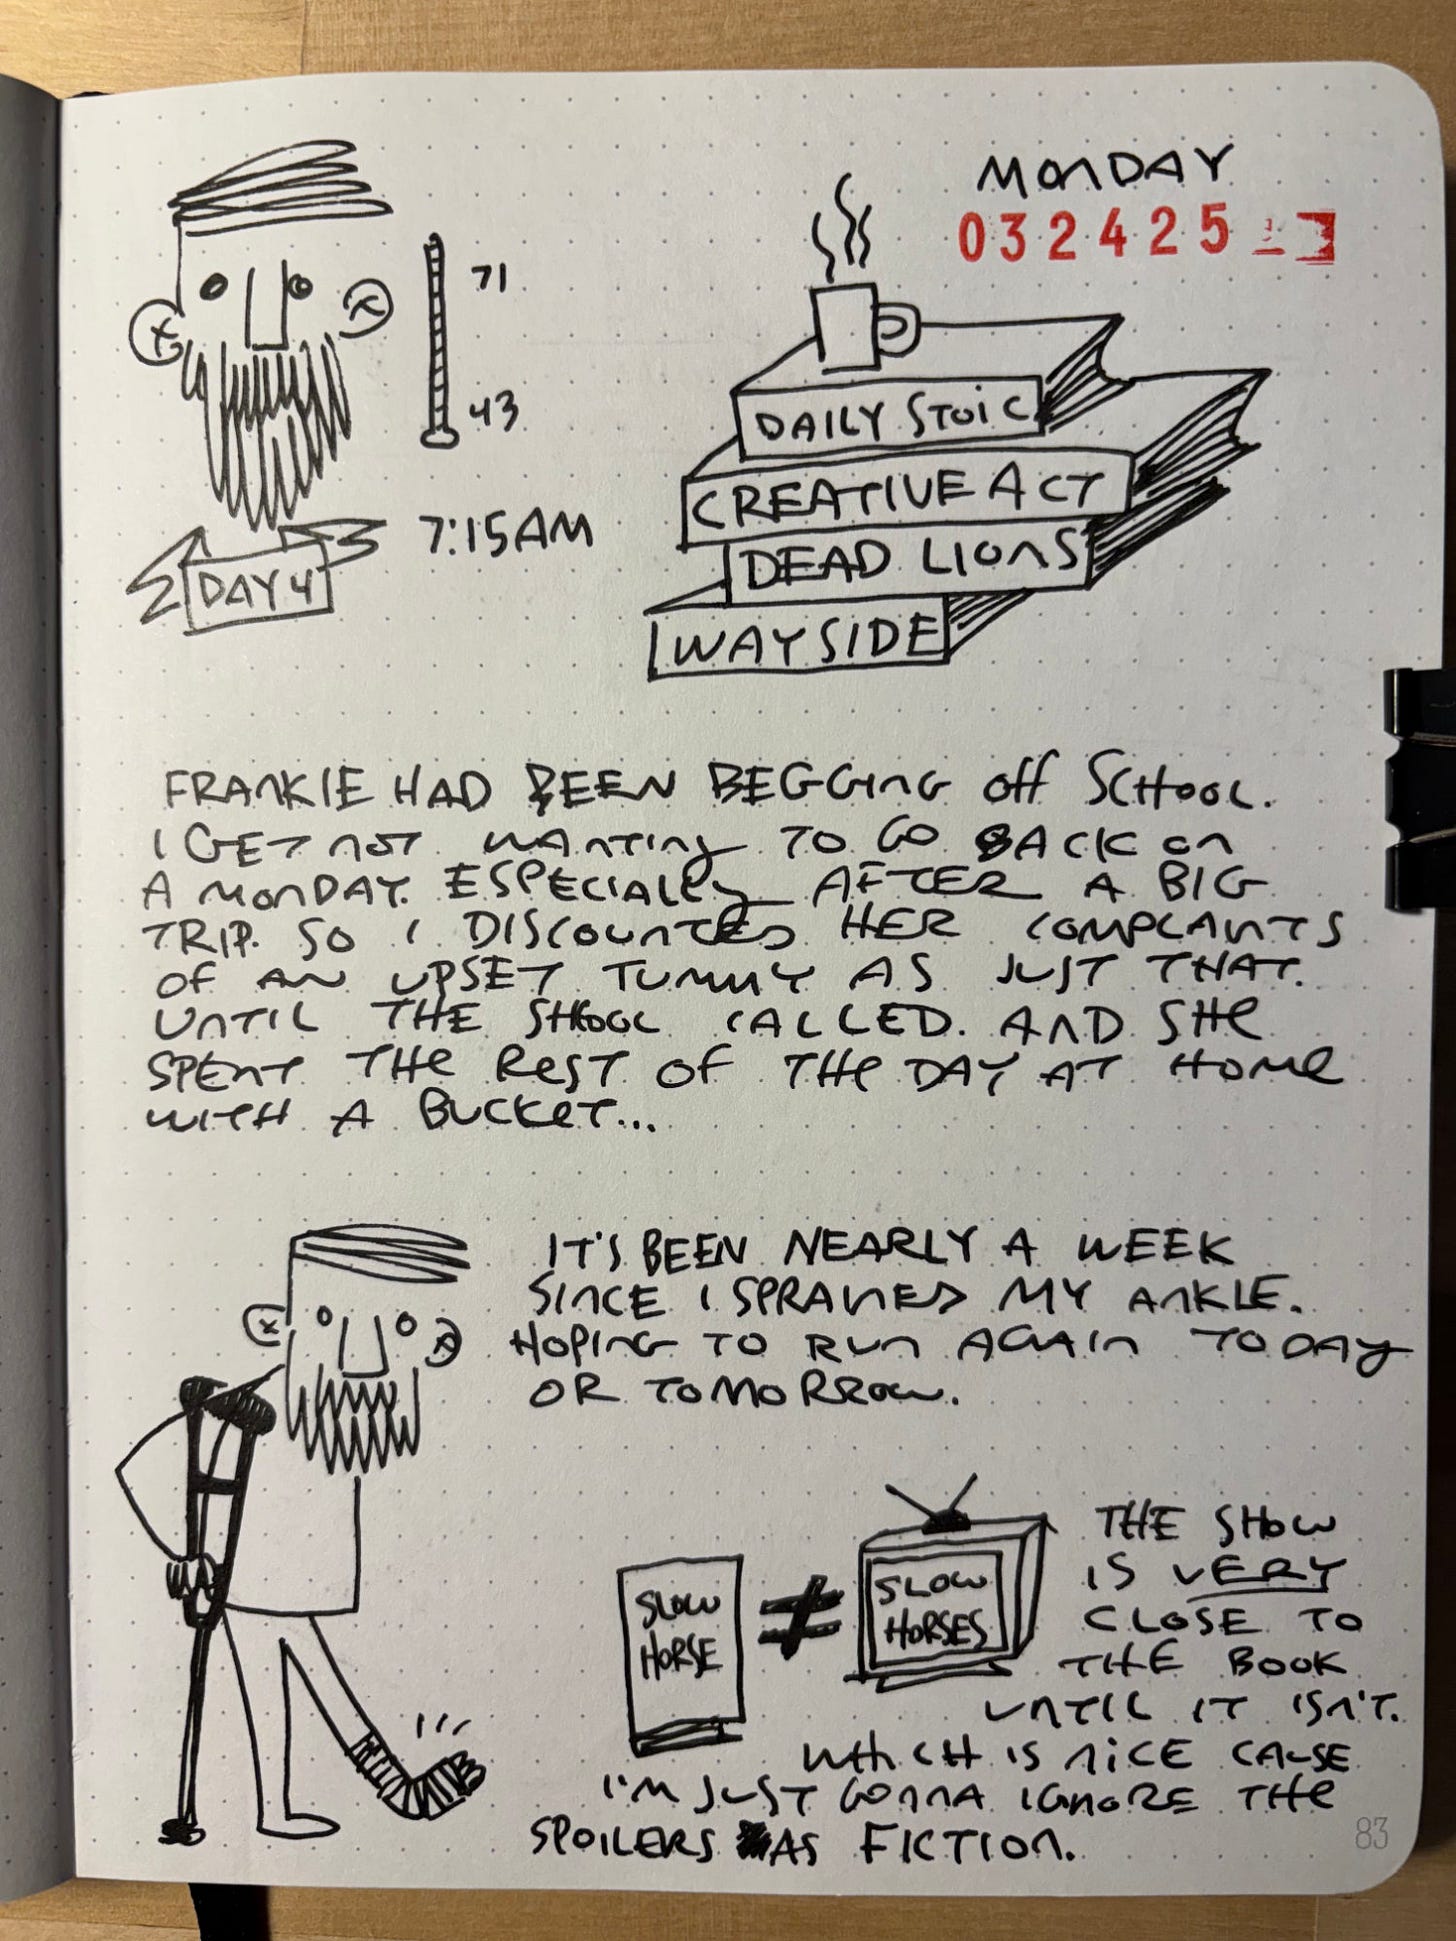 MONDAY
032425
71
43
7:15AM
DAY 4
DAILY STOIC
CREATIVE ACT
DEAD LIONS
WAYSIDE
FRANKIE HAD BEEN BEGGING OFF SCHOOL.
I GET NOT WANTING TO GO BACK ON
A MONDAY. ESPECIALLY AFTER A BIG
TRIP. SO I DISCOUNTED HER COMPLAINTS
OF AN UPSET TUMMY AS JUST THAT.
UNTIL THE SHOOL CALLED. AND SHE
SPENT THE REST OF THE DAY AT HOME
WITH A BUCKET...
IT'S BEEN NEARLY A WEEK
SINCE I SPRAINED MY ANKLE.
HOPING TO RUN AGAIN TODAY
OR TOMORROW.
SLOW
HORSE
≠
SLOW
HORSES
THE SHOW
IS VERY
CLOSE TO
THE BOOK
UNTIL IT ISN'T.
WHICH IS NICE CAUSE
I'M JUST GONNA IGNORE THE
SPOILERS AS FICTION.
83